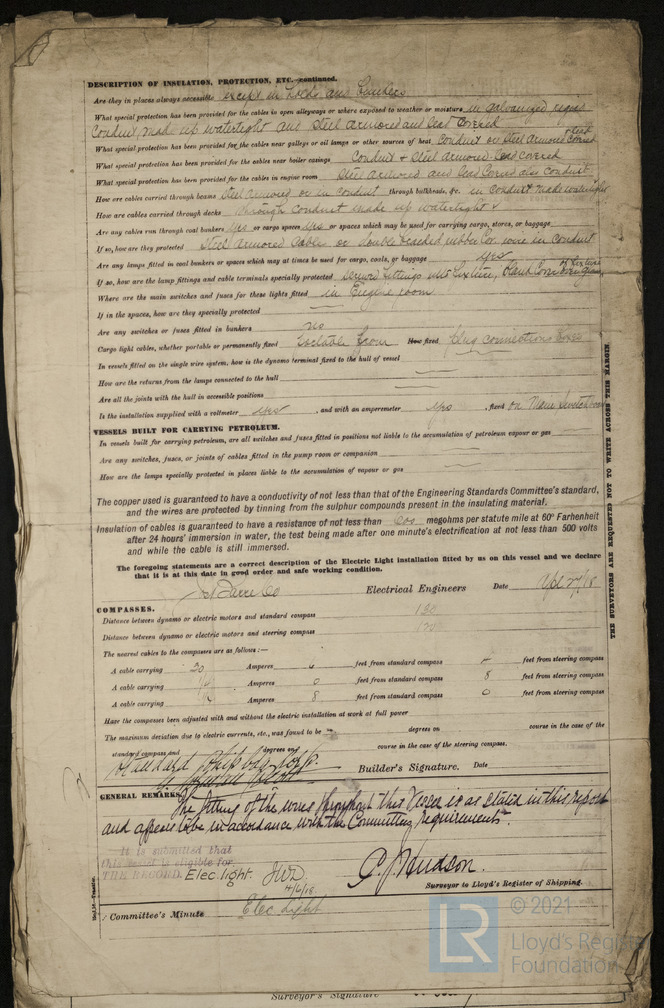 DESCRIPTION OF INSULATION, PROTECTION, ETC.—continued.
Are they in places always accessible except in Locks and Limbers
What special protection has been provided for the cables in open alleyways or where exposed to weather or moisture in galvanized
Conduit, made up watertight and Steel Armored and Lead Covered
What special protection has been provided for the cables near galleys or oil lamps or other sources of heat Conduit or Steel Armored & Lead Covered
What special protection has been provided for the cables near boiler casings Conduit & Steel Armored Lead Covered
What special protection has been provided for the cables in engine room Steel Armored and Lead Covered also conduit
How are cables carried through beams Steel Armored or in conduit through bulkheads, &c. in conduit & made watertight
How are cables carried through decks through conduit made up watertight &
Are any cables run through coal bunkers yes or cargo spaces yes or spaces which may be used for carrying cargo, stores, or baggage
If so, how are they protected Steel Armored Cable or double braided rubber Cov. wire in Conduit
Are any lamps fitted in coal bunkers or spaces which may at times be used for cargo, coals, or baggage yes
If so, how are the lamp fittings and cable terminals specially protected
Where are the main switches and fuses for these lights fitted in Engine room
If in the spaces, how are they specially protected
Are any switches or fuses fitted in bunkers no
Cargo light cables, whether portable or permanently fixed How fixed plug connections
In vessels fitted on the single wire system, how is the dynamo terminal fixed to the hull of vessel
How are the returns from the lamps connected to the hull
Are all the joints with the hull in accessible positions
Is the installation supplied with a voltmeter yes, and with an amperemeter yes, fixed on Main Switch
VESSELS BUILT FOR CARRYING PETROLEUM.
In vessels built for carrying petroleum, are all switches and fuses fitted in positions not liable to the accumulation of petroleum vapour or gas
Are any switches, fuses, or joints of cables fitted in the pump room or companion
How are the lamps specially protected in places liable to the accumulation of vapour or gas
The copper used is guaranteed to have a conductivity of not less than that of the Engineering Standards Committee's standard,
and the wires are protected by tinning from the sulphur compounds present in the insulating material.
Insulation of cables is guaranteed to have a resistance of not less than 600 megohms per statute mile at 60° Farhenheit
after 24 hours' immersion in water, the test being made after one minute's electrification at not less than 500 volts
and while the cable is still immersed.
The foregoing statements are a correct description of the Electric Light installation fitted by us on this vessel and we declare
that it is at this date in good order and safe working condition.
Electrical Engineers Date
COMPASSES.
Distance between dynamo or electric motors and standard compass 120
Distance between dynamo or electric motors and steering compass 120
The nearest cables to the compasses are as follows:—
A cable carrying 20 Amperes feet from standard compass feet from steering compass
A cable carrying Amperes 0 feet from standard compass 8 feet from steering compass
A cable carrying Amperes 8 feet from standard compass 0 feet from steering compass
Have the compasses been adjusted with and without the electric installation at work at full power
The maximum deviation due to electric currents, etc., was found to be degrees on course in the case of the
standard compass and degrees on course in the case of the steering compass.
Standard Shipbuilding Corp.
Builder's Signature. Date
GENERAL REMARKS.
The fitting of the wires throughout this Vessel is as stated in this report
and appears to be in accordance with the Committee's requirements.
It is submitted that
this vessel is eligible for
THE RECORD. Elec. light. JWD
4/6/18
Surveyor to Lloyd's Register of Shipping.
Committee's Minute Elec Light
THE SURVEYORS ARE REQUESTED NOT TO WRITE ACROSS THIS MARGIN.
LR
© 2021
Lloyd's Register
Foundation
Surveyor's Signature